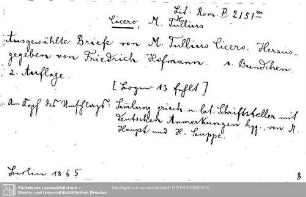 Lit. Rom. B. 2151m
Cicero, M. Tullius
Ausgewählte Briefe von M. Tullius Cicero. Heraus-
gegeben von Friedrich Hofmann. 1. Bändchen
2. Auflage.
[Bogen 13 fehlt]
Am Kopf des Umschlags: Sammlung griech. u. lat. Schriftsteller mit
deutschen Anmerkungen hgg. von M.
Haupt und H. Sauppe.
Berlin 1865
8
Sächsische Landesbibliothek -
Staats- und Universitätsbibliothek Dresden